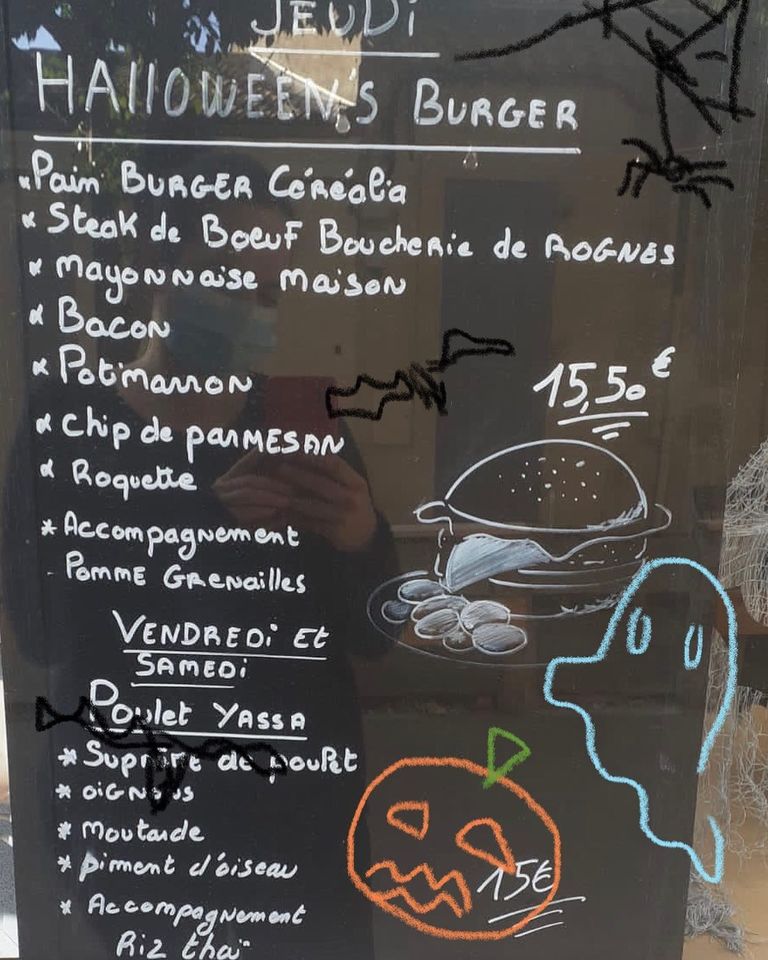 JEUDi
HAllOWEEN'S BURGER
* Pain BURGER Céréalia
* Steak de Boeuf Boucherie de ROGNES
* Mayonnaise Maison
* Bacon
* Potimarron
15,50€
* Chip de PARMESAN
* Roquette
* Accompagnement
- Pomme Grenailles
VENDREDi Et
SAMEDi
Poulet YASSA
* Suprême de poulet
* oignons
* Moutarde
* piment d'oiseau
15€
* Accompagnement
Riz thaï